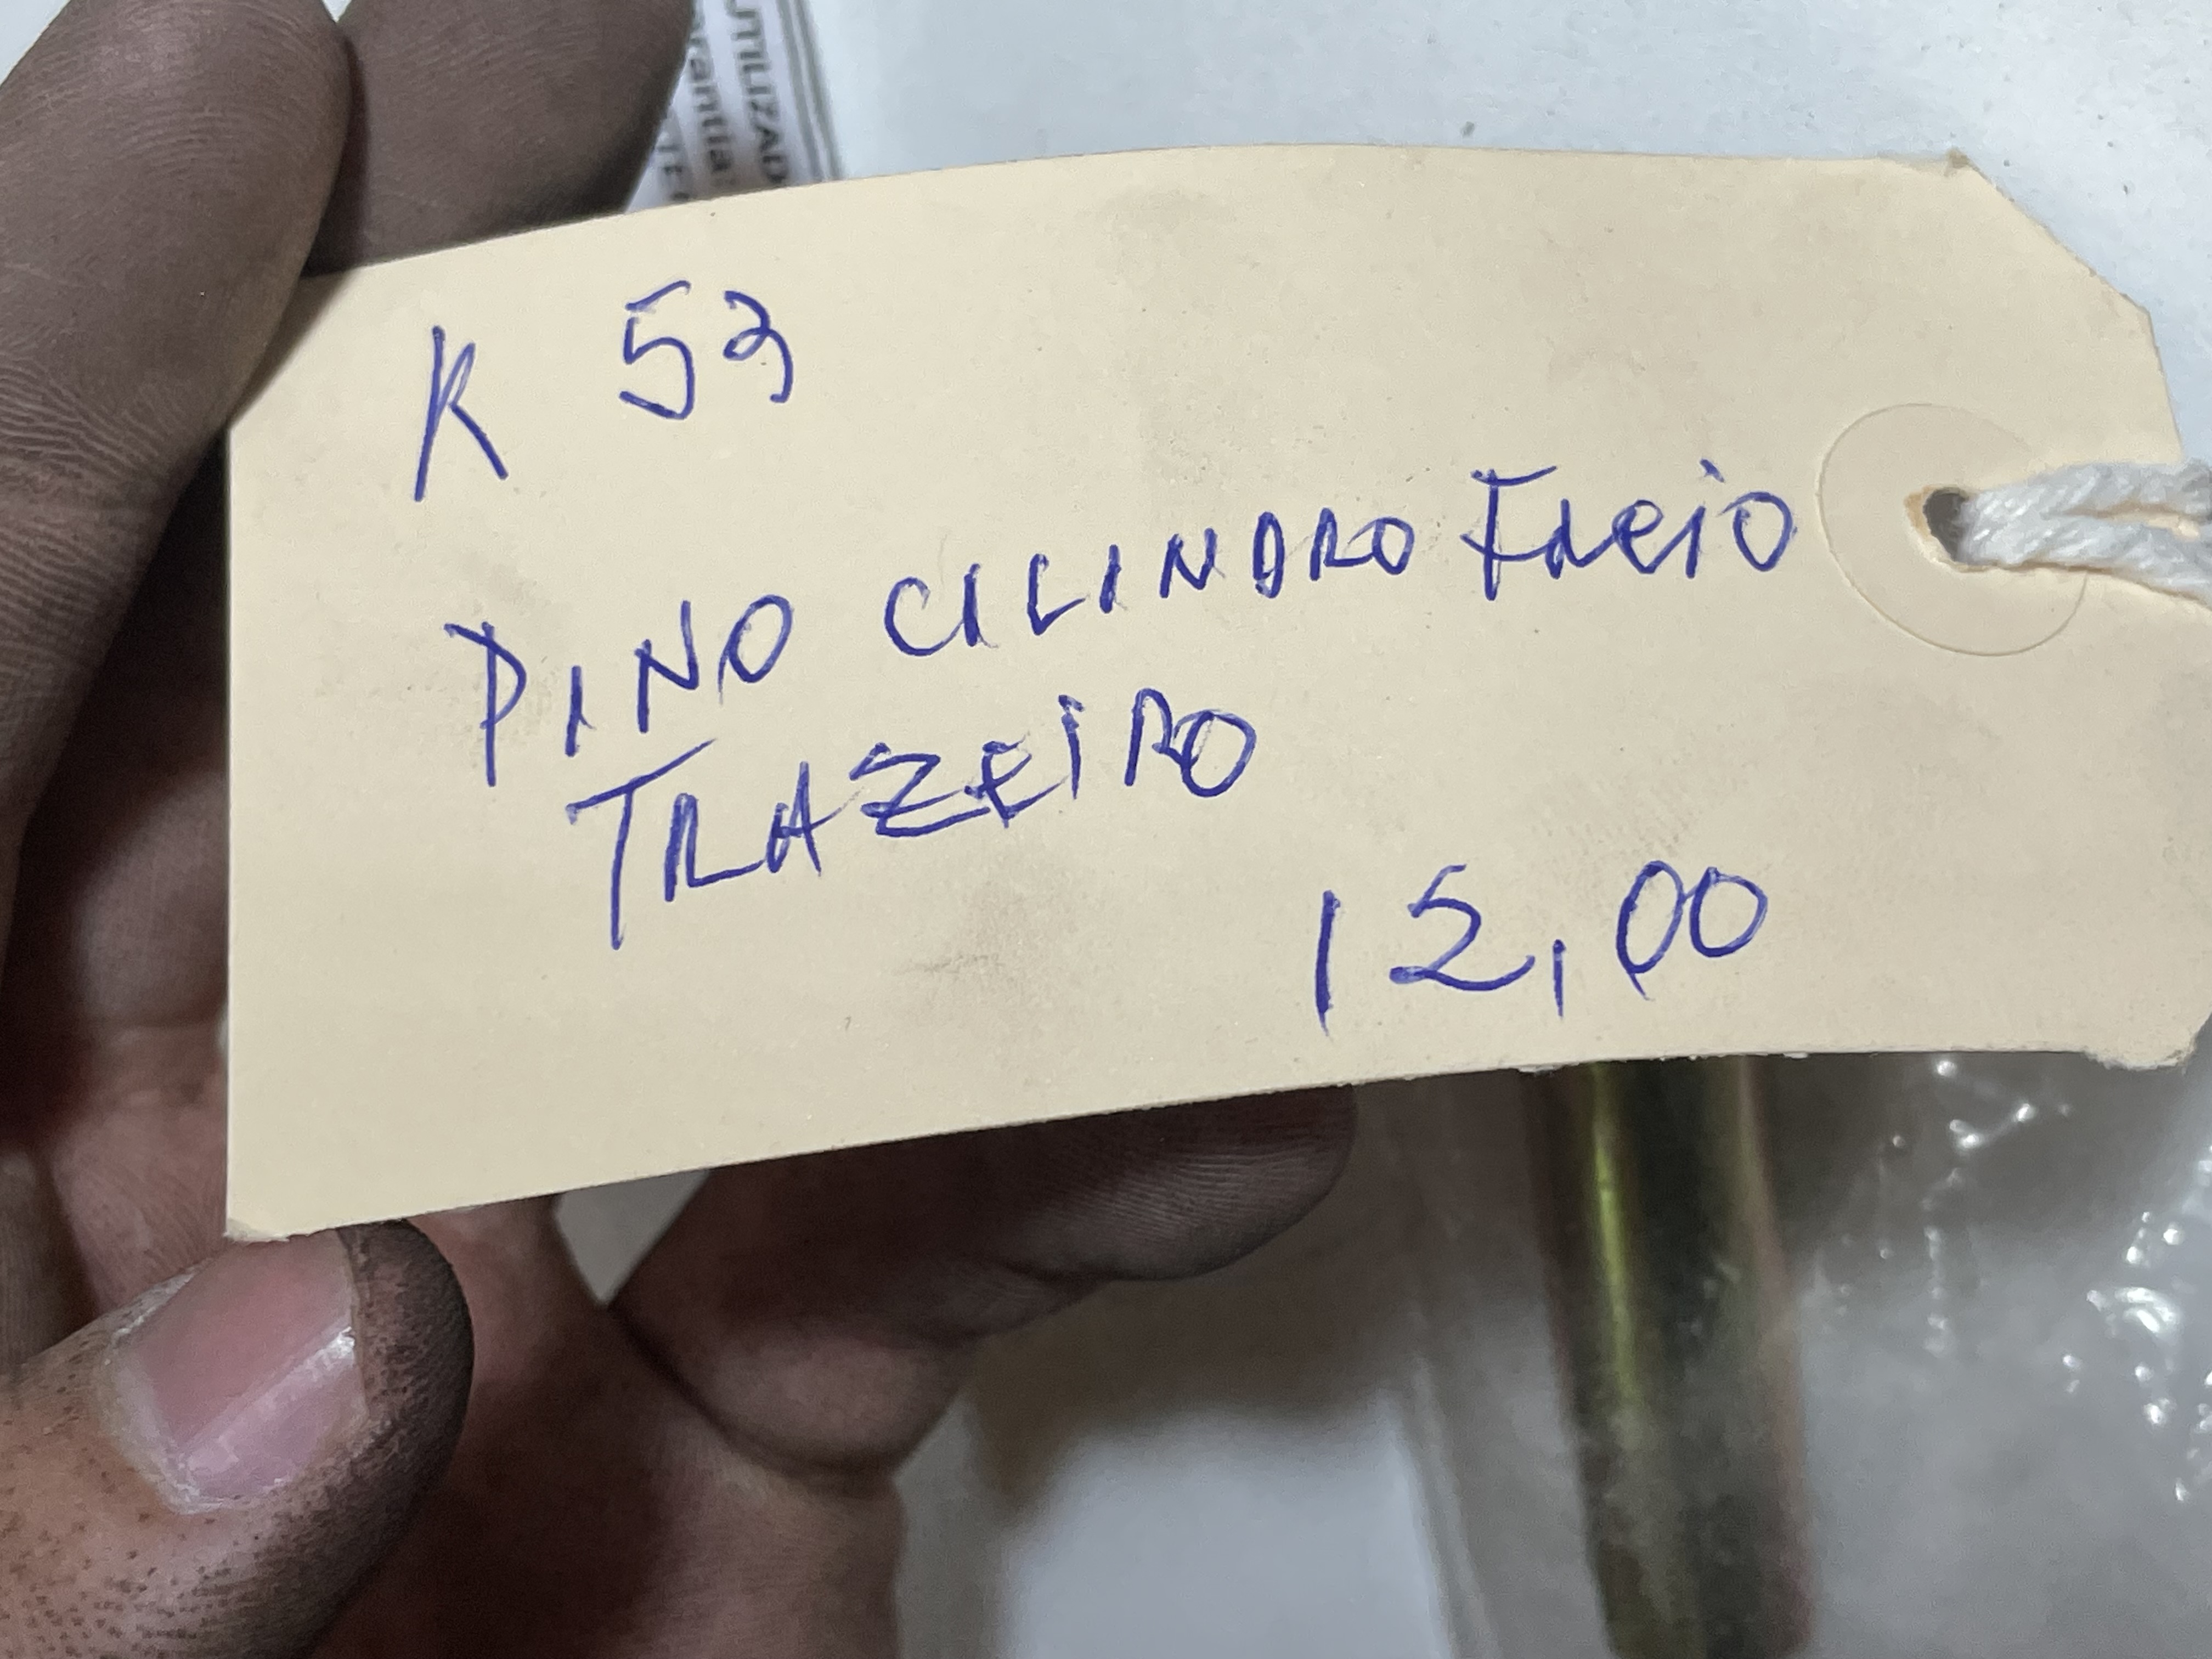 K 53
PINO CILINDRO FREIO
TRAZEIRO
15,00
UTILIZAD
rantia: